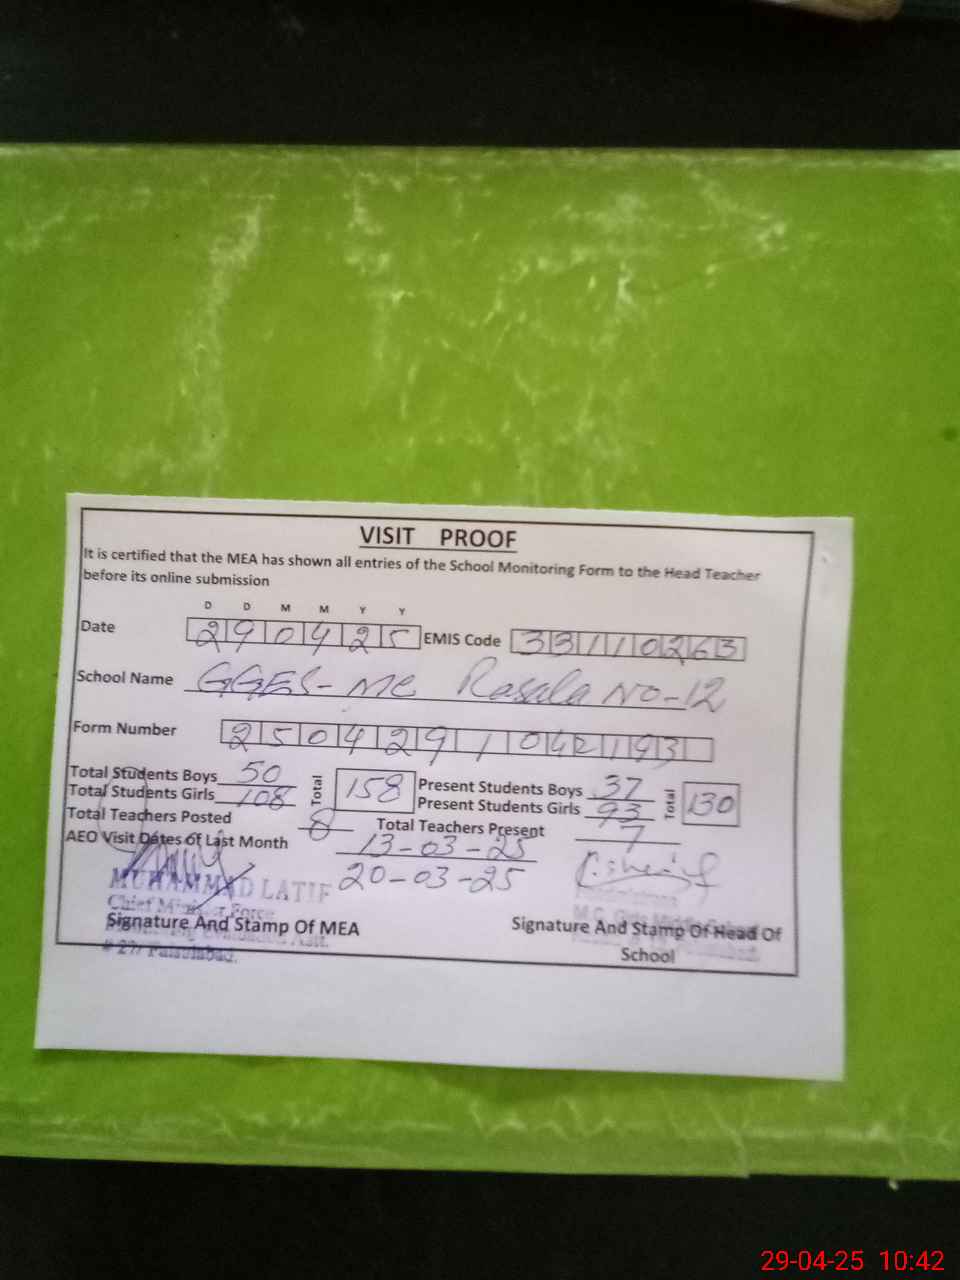 VISIT PROOF
It is certified that the MEA has shown all entries of the School Monitoring Form to the Head Teacher
before its online submission
D D M M Y Y
Date 290425 EMIS Code 33110263
School Name GGES-MC Rasala NO-12
Form Number 2504291042193
Total Students Boys 50 Total 158 Present Students Boys 37 Total 130
Total Students Girls 108 Present Students Girls 93
Total Teachers Posted 8 Total Teachers Present 7
AEO Visit Dates of Last Month 13-03-25
20-03-25
MUHAMMAD LATIF
Chief Minister Force
Signature And Stamp Of MEA Signature And Stamp Of Head Of
School
# 27/ Faisalabad.
29-04-25 10:42